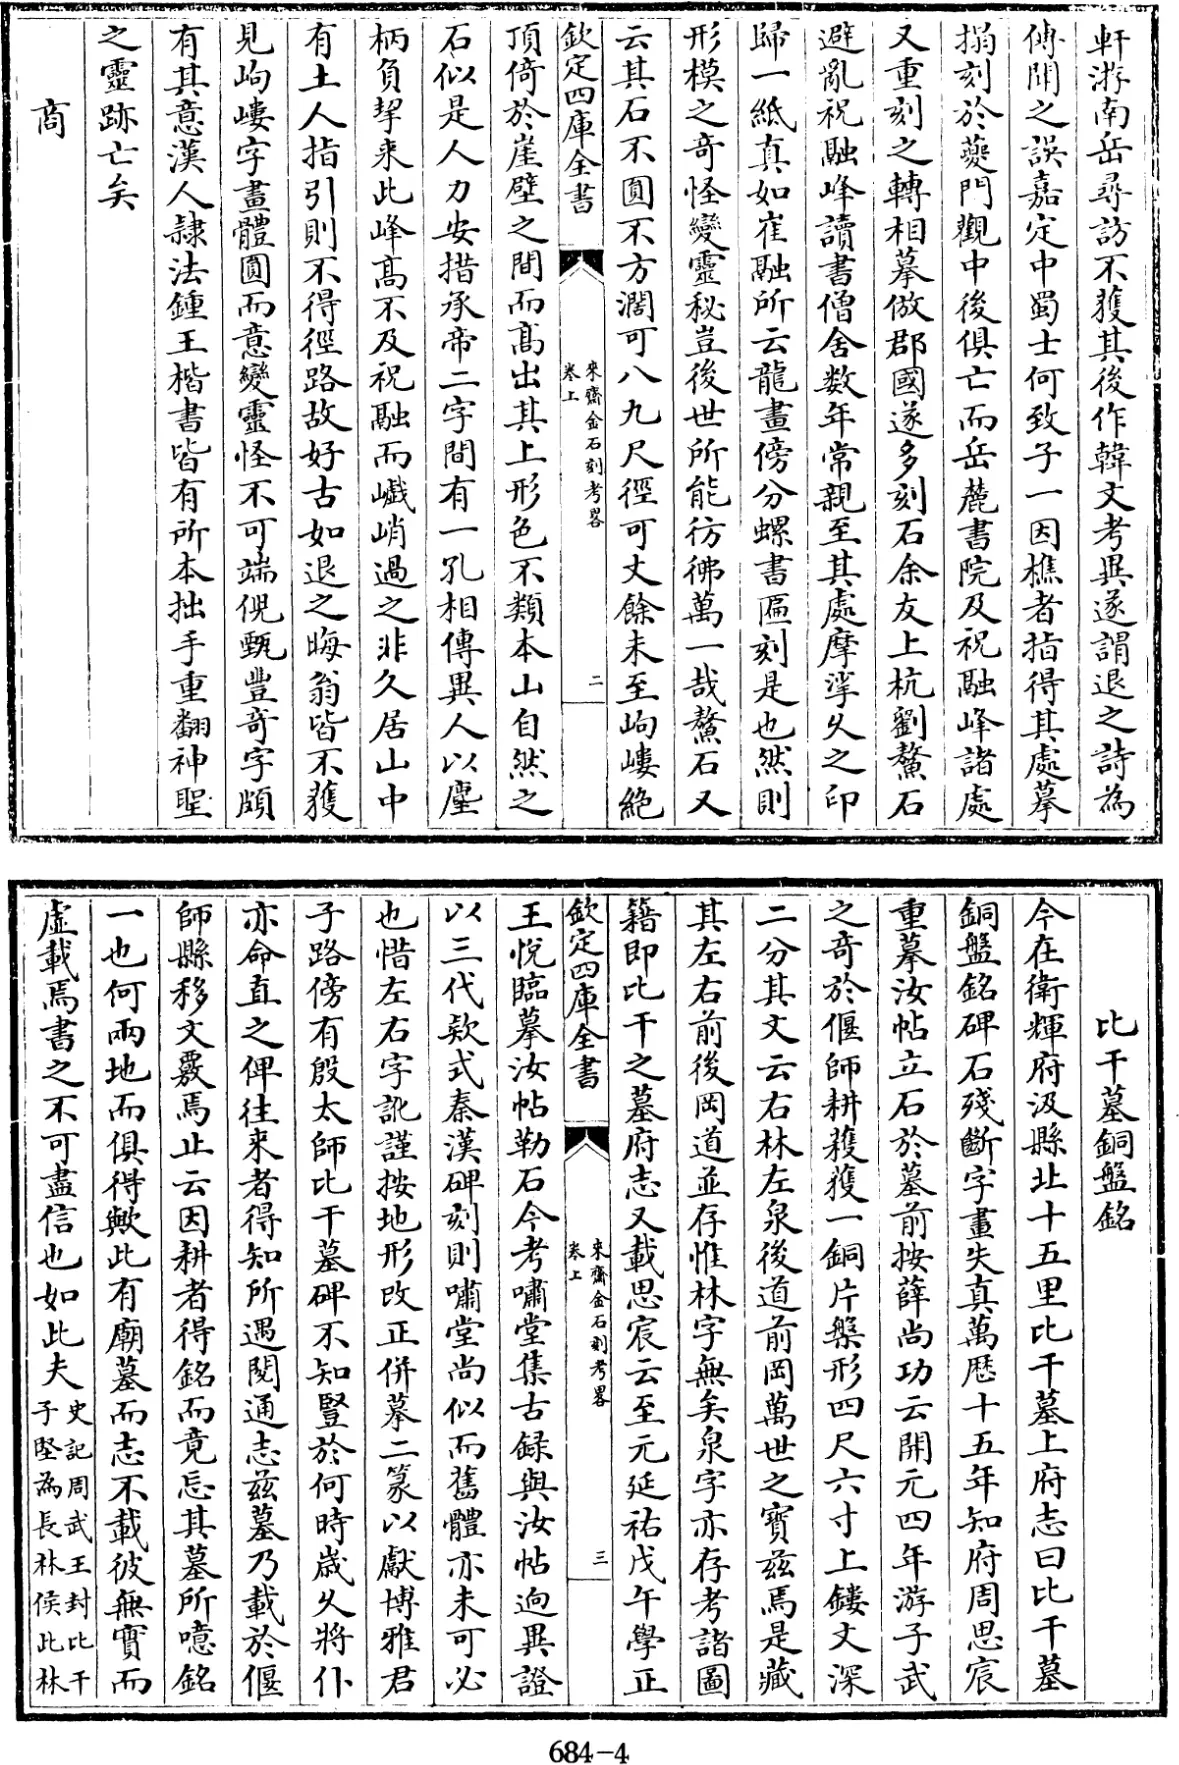 軒游南岳尋訪不獲其後作韓文考異遂謂退之詩為
傳聞之誤嘉定中蜀士何致子一因樵者指得其處摹
搨刻於夔門觀中後俱亡而岳麓書院及祝融峰諸處
又重刻之轉相摹倣郡國遂多刻石余友上杭劉鰲石
避亂祝融峰讀書僧舍数年常親至其處摩挲久之印
歸一紙真如崔融所云龍畫傍分螺書匾刻是也然則
形模之奇怪變靈秘豈後世所能彷彿萬一哉鰲石又
云其石不圓不方濶可八九尺徑可丈餘未至岣嶁絶
欽定四庫全書
來齋金石刻考畧
卷上
二
頂倚於崖壁之間而髙出其上形色不類本山自然之
石似是人力安措承帝二字間有一孔相傳異人以塵
柄負挈来此峰髙不及祝融而巇峭過之非久居山中
有土人指引則不得徑路故好古如退之晦翁皆不獲
見岣嶁字畫體圓而意變靈怪不可端倪甄豐奇字頗
有其意漢人隷法鍾王楷書皆有所本拙手重翻神聖
之靈跡亡矣
商
比干墓銅盤銘
今在衛輝府汲縣北十五里比干墓上府志曰比干墓
銅盤銘碑石殘斷字畫失真萬歴十五年知府周思宸
重摹汝帖立石於墓前按薛尚功云開元四年游子武
之奇於偃師耕穫獲一銅片槃形四尺六寸上鏤文深
二分其文云右林左泉後道前岡萬世之寳兹焉是藏
其左右前後岡道並存惟林字無矣泉字亦存考諸圖
籍即比干之墓府志又載思宸云至元延祐戊午學正
欽定四庫全書
來齋金石刻考畧
卷上
三
王悅臨摹汝帖勒石今考嘯堂集古録與汝帖逈異證
以三代欵式秦漢碑刻則嘯堂尚似而舊體亦未可必
也惜左右字訛謹按地形改正併摹二篆以獻博雅君
子路傍有殷太師比干墓碑不知豎於何時歳久將仆
亦命直之俾往来者得知所遇閲通志兹墓乃載於偃
師縣移文覈焉止云因耕者得銘而竟忘其墓所噫銘
一也何兩地而俱得歟此有廟墓而志不載彼無實而
虚載焉書之不可盡信也如此夫史記周武王封比干
子堅為長林侯此林
684-4